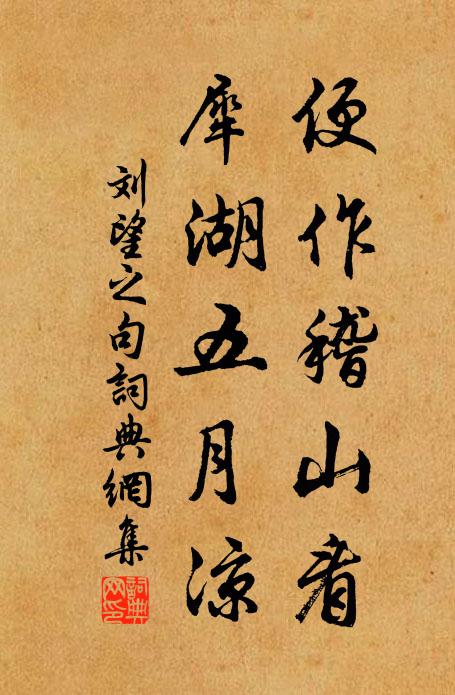 便作稽山看
犀湖五月涼
刘望之句詞典網集
詞典
网印